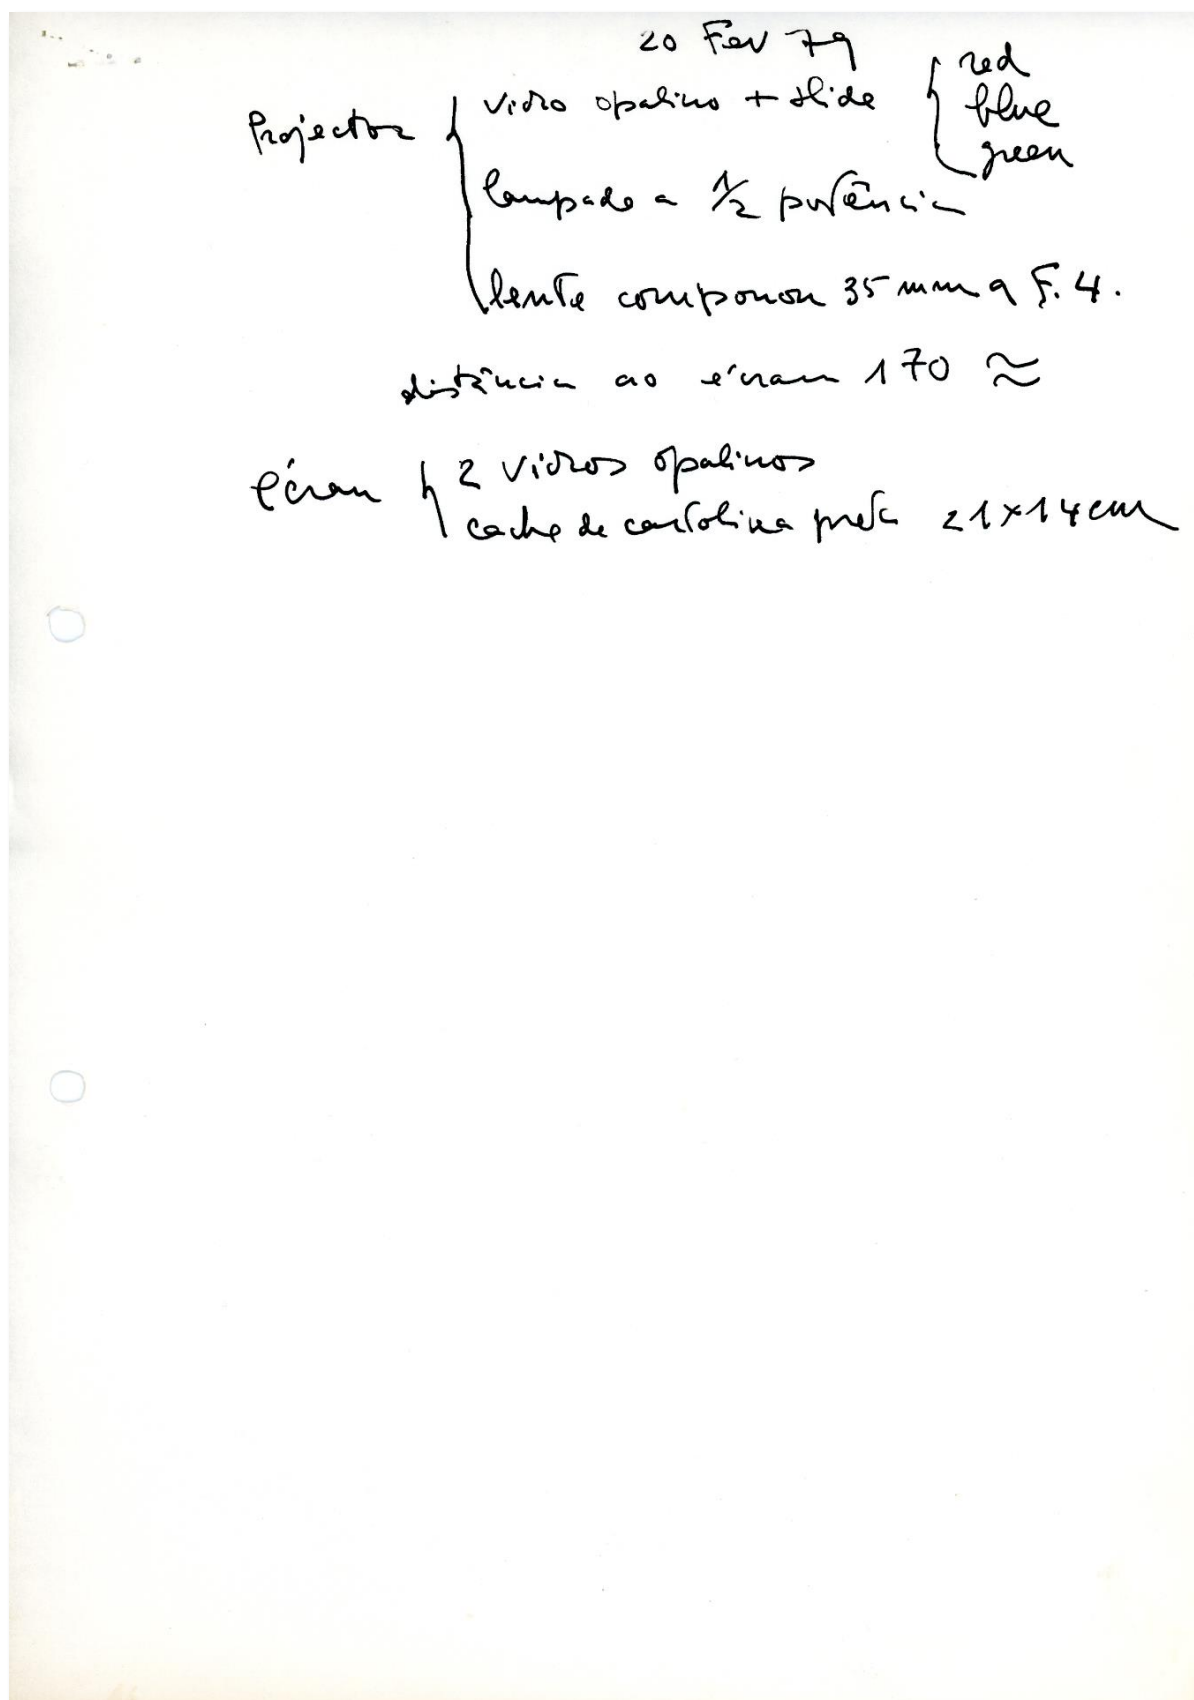 20 Fev 79
Projector { vidro opalino + slide { red
blue
green
lampada a 1/2 potência
lente componon 35 mm a F. 4.
distância ao écran 170 ≈
écran { 2 vidros opalinos
cache de cartolina preta 21×14cm